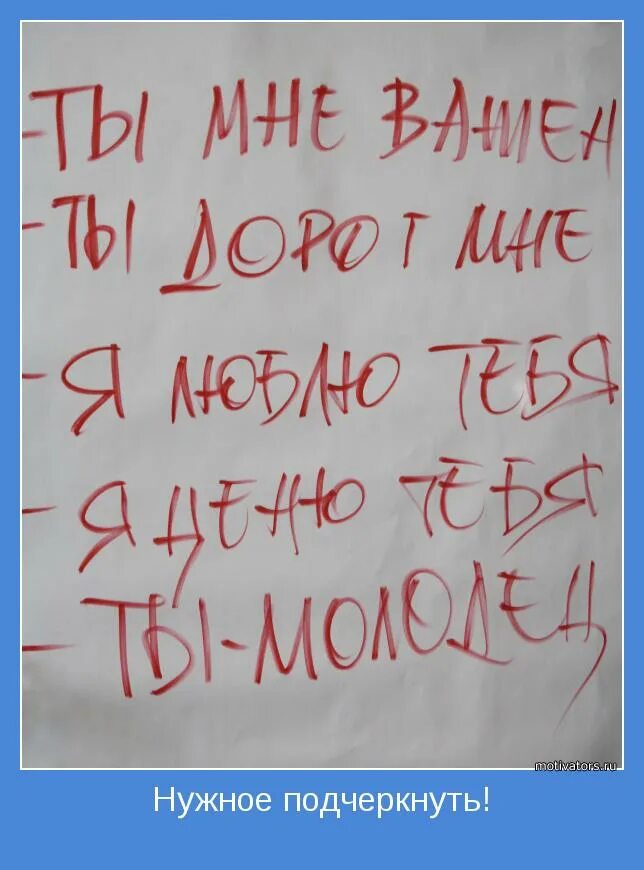 - ТЫ МНЕ ВАЖЕН
- ТЫ ДОРОГ МНЕ
- Я ЛЮБЛЮ ТЕБЯ
- Я ЦЕНЮ ТЕБЯ
- ТЫ - МОЛОДЕЦ
motivators.ru
Нужное подчеркнуть!